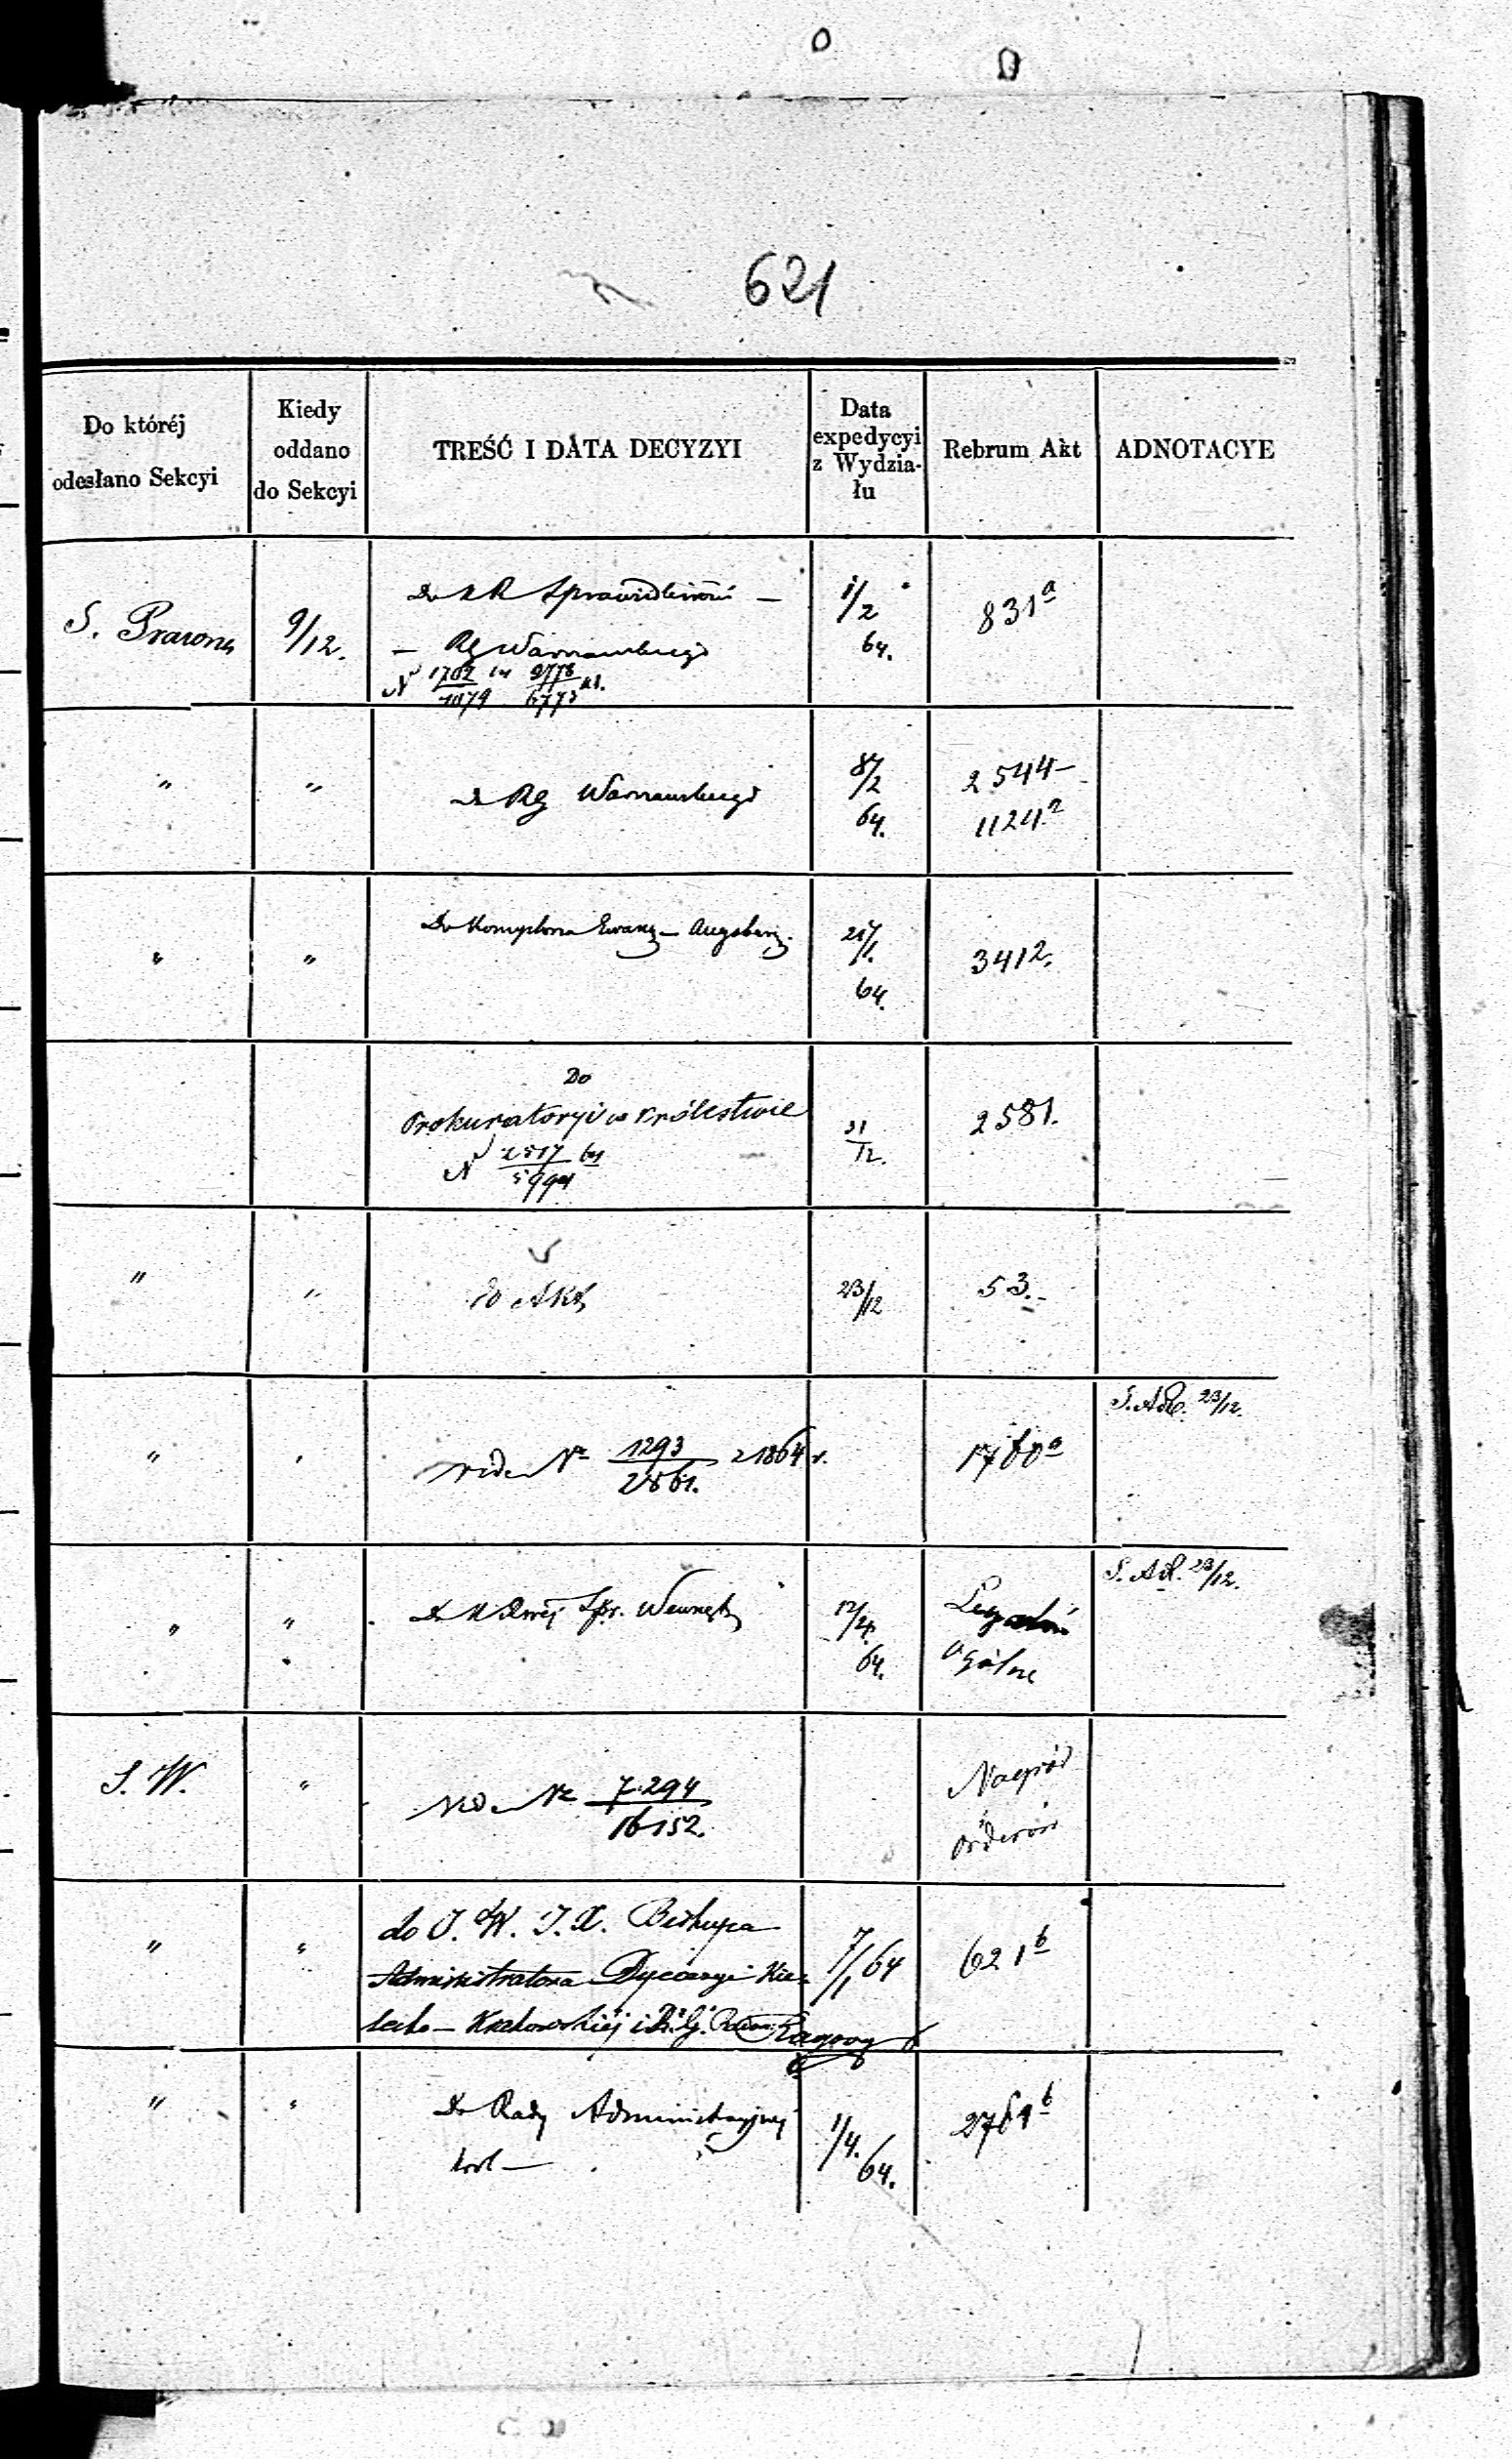 621
Do któréj odesłano Sekcyi
Kiedy oddano do Sekcyi
TREŚĆ I DATA DECYZYI
Data expedycyi z Wydzia- łu
Rebrum Akt
ADNOTACYE
S. Prawna
9/12.
Do KR Sprawiedliwości —
— RG Warszawskiego
N
1/2
64.
831a
"
"
do RG Warszawskiego
8/2
64.
2544—
1124a
"
"
Do Konsystorza Ewang— Augsburg.
21/1.
64.
3412.
Do
Prokuratoryi w Królestwie
N 2517/5994
31/12.
2581.
"
"
do Akt
23/12
53.
"
"
vide No 1293/2861. z 1864 r.
1760a
S. Ad. 23/12.
"
"
Do Spr. Wewnętr
12/4.
64.
ogólne
S. Ad. 23/12.
S. W.
"
vide No 7.294/16152.
Nagród
orderów
"
"
do J. W. J. X. Biskupa
Administratora Dyecezyi Kie-
lecko— Krakowskiéj i R. G. Radom
7/1 64
621b
"
"
Do Rady Administracyjnej
Król—
1/4. 64.
2761b